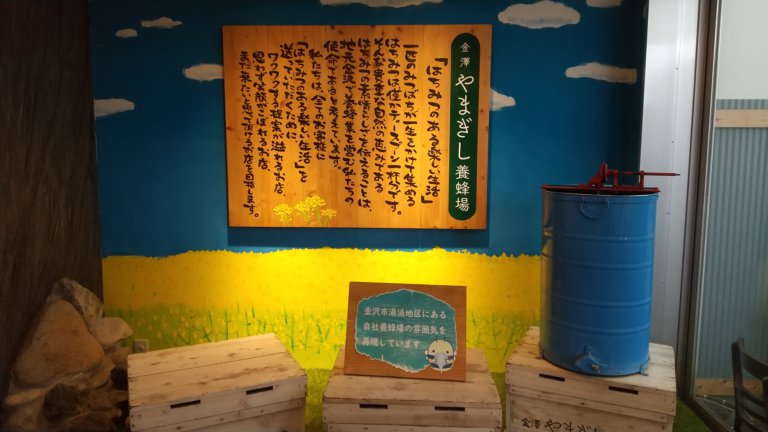 金澤 やまぎし養蜂場
「はちみつのある楽しい生活」
一匹のみつばちが一生をかけて集める
はちみつは僅かティースプーン一杯分です。
そんな貴重な自然の恵みである
はちみつの素晴らしさを伝えることは、
地元金沢で養蜂業を営む私たちの
使命であると考えています。
私たちは、全てのお客様に
「はちみつのある楽しい生活」を
送っていただくために
ワクワクする提案が溢れるお店、
思わず笑顔がこぼれるお店、
また来たいと思って頂けるお店を目指します。
金沢市湯涌地区にある
自社養蜂場の雰囲気を
再現しています
金澤 やまぎし